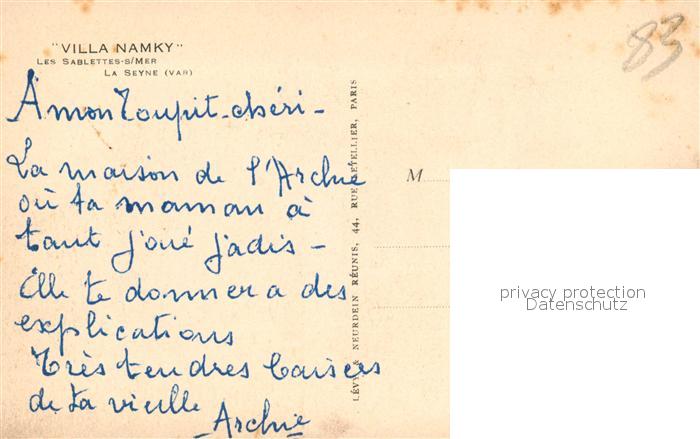 "VILLA NAMKY"
LES SABLETTES-S/MER
LA SEYNE (VAR)
83
À mon Toupit chéri -
La maison de l'Archie
où ta maman à
tant joué jadis -
Elle te donnera des
explications
Très tendres baisers
de ta vieille
Archie
LÉVY & NEURDEIN RÉUNIS, 44, RUE LETELLIER, PARIS
M
privacy protection
Datenschutz